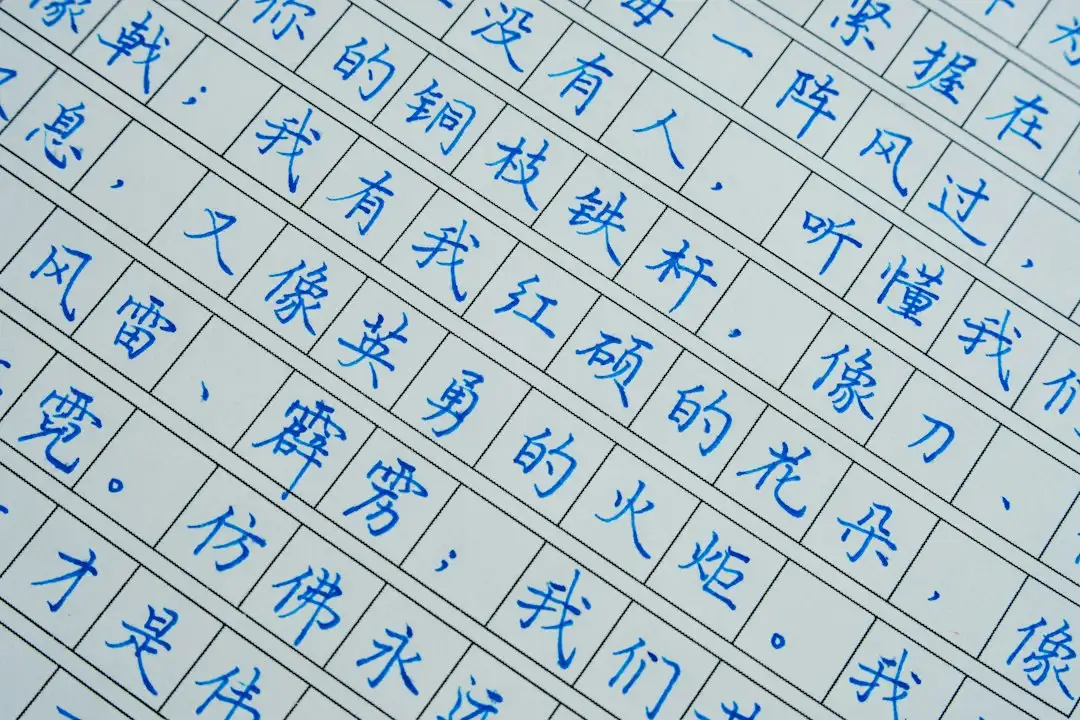 紧握在
每一阵风过，
没有人，听懂我们
你的铜枝铁杆，像刀、
像戟；我有我红硕的花朵，像
息，又像英勇的火炬。我
风雷、霹雳；我们共
霓。仿佛永远
才是伟